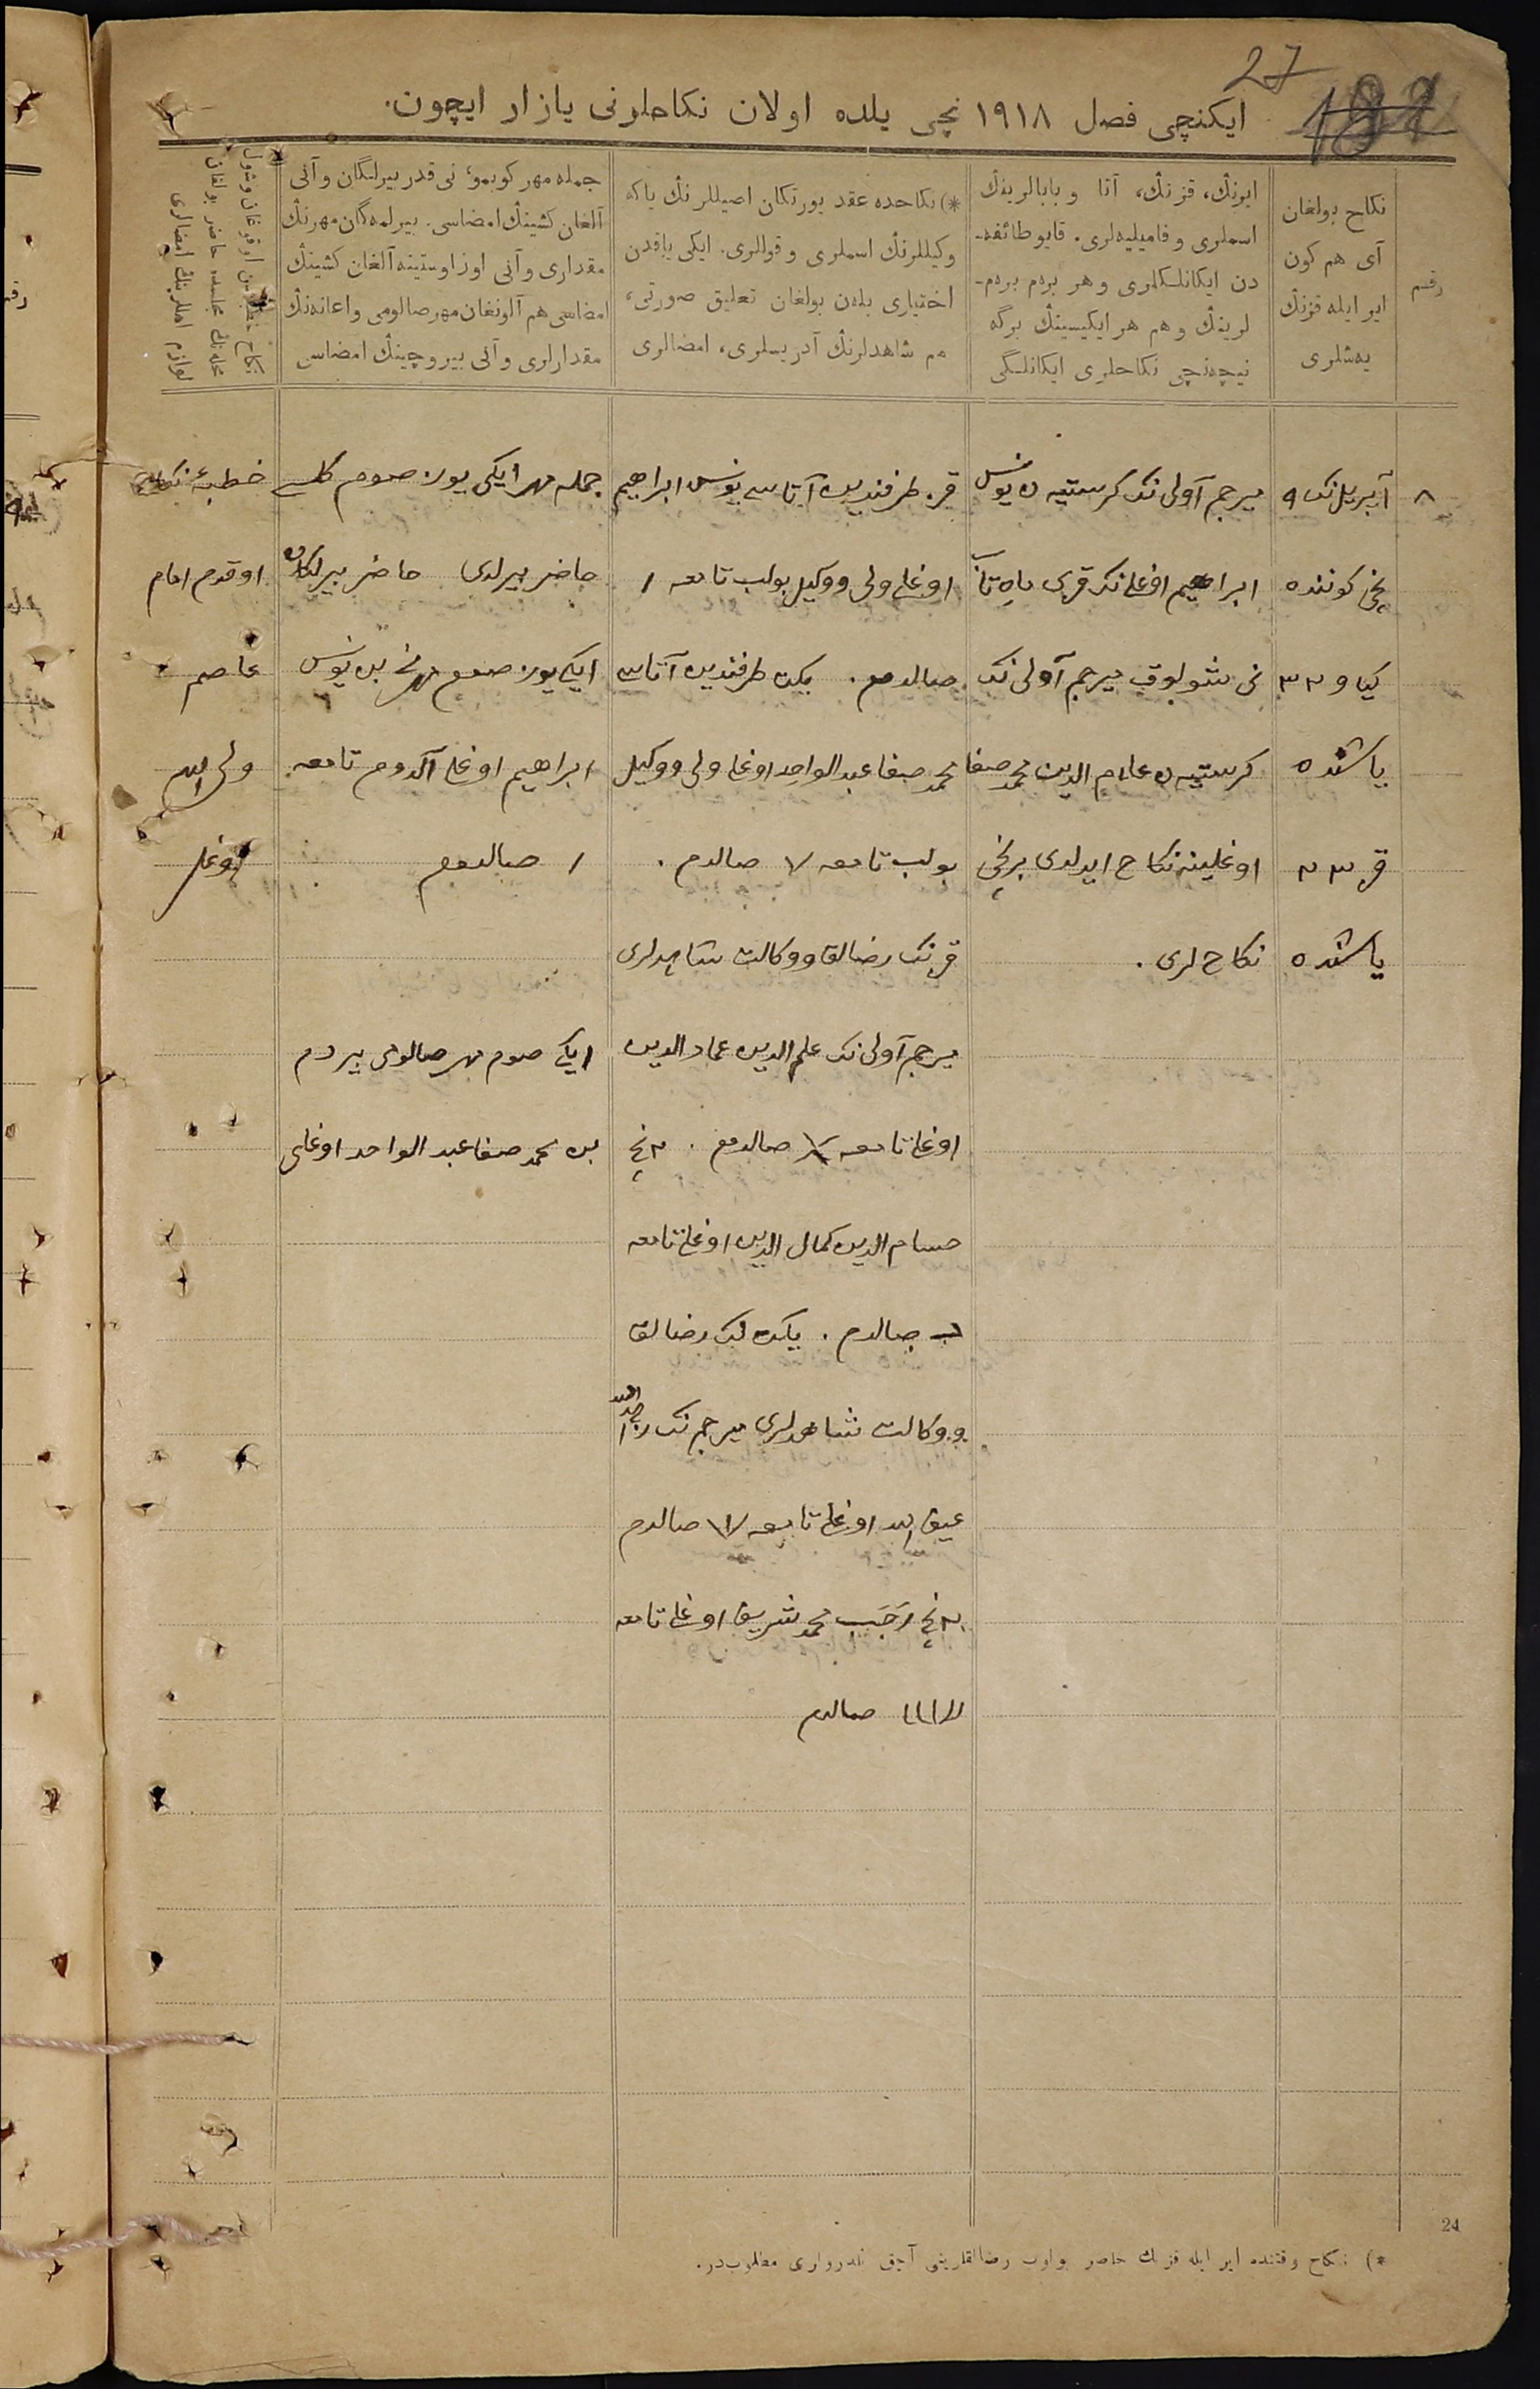 27
ایکنچی فصل ۱۹۱۸ نچی یلده اولان نکاحلرنی یازار ایچون.
رقم
نکاح بولغان
آی هم کون
ایر ایله قزنڭ
یەشلری
ایرنڭ، قزنڭ، آتا و بابالرینڭ
اسملری و فامیلیەلری. قایو طائفە-
دن ایکانلکلری و هر برەم برەم-
لرینڭ و هم هر ایکیسینڭ برگه
نیچەنچی نکاحلری ایکانلگی
*) نکاحده عقد یورتکان اصیللرنڭ یاکه
وکیللرنڭ اسملری و قوللری. ایکی یاقدن
اختیاری بلەن بولغان تعلیق صورتی،
هم شاهدلرنڭ آدریسلری، امضالری
جمله مهر کوبمو، نی قدر بیرلگان و آنی
آلغان کشینڭ امضاسی. بیرلمەگان مهرنڭ
مقداری و آنی اوز اوستینه آلغان کشینڭ
امضاسی هم آلونغان مهر صالومی و اعانەنڭ
مقدارلری و آنی بیروچینڭ امضاسی
۸
آپریل نک ۹
نچی کوننده
کیاو ۲۳
یاشنده
قز ۲۳
یاشنده
میرجم آولی نک کرستیەن یونس
ابراهیم اوغلی نک قزی ماهتاب
نی شولوق میرجم آولی نک
کرستیەن علام الدین محمد صفا
اوغلینه نکاح ایدلدی برنچی
نکاح لری.
قز طرفندین آتاسی یونس ابراهیم
اوغلی ولی و وکیل بولب تامغه /
صالدم. یکت طرفندین آتاسی
محمد صفا عبدالواحد اوغلی ولی و وکیل
بولب تامغه ۷ صالدم.
قزنک رضالق و وکالت شاهدلری
میرجم آولی نک علم الدین عماد الدین
اوغلی تامغه صالدم. ۲ نچی
حسام الدین کمال الدین اوغلی تامغه
صالدم. یکت نک رضالق
و وکالت شاهدلری میرجم نک
اوغلی تامغه صالدم
۲ نچی رجب محمد شریف اوغلی تامغه
صالدم
جمله مهر ایکی یوز صوم کلسی
حاضر بیرلدی حاضر بیرلکان
ایکی یوز صوم مهرنی من یونس
ابراهیم اوغلی آلدوم تامغه
/ صالدم
ایکی صوم مهر صالومی بیردم
من محمد صفا عبد الواحد اوغلی
خطبۀ نکاح
اوقدم امام
عاصم
ولی الله
اوغلی
24
*) نکاح وقتنده ایر ایله قزنڭ حاضر بولوب رضالقلرینی آچق بلدرولری مطلوبدر.